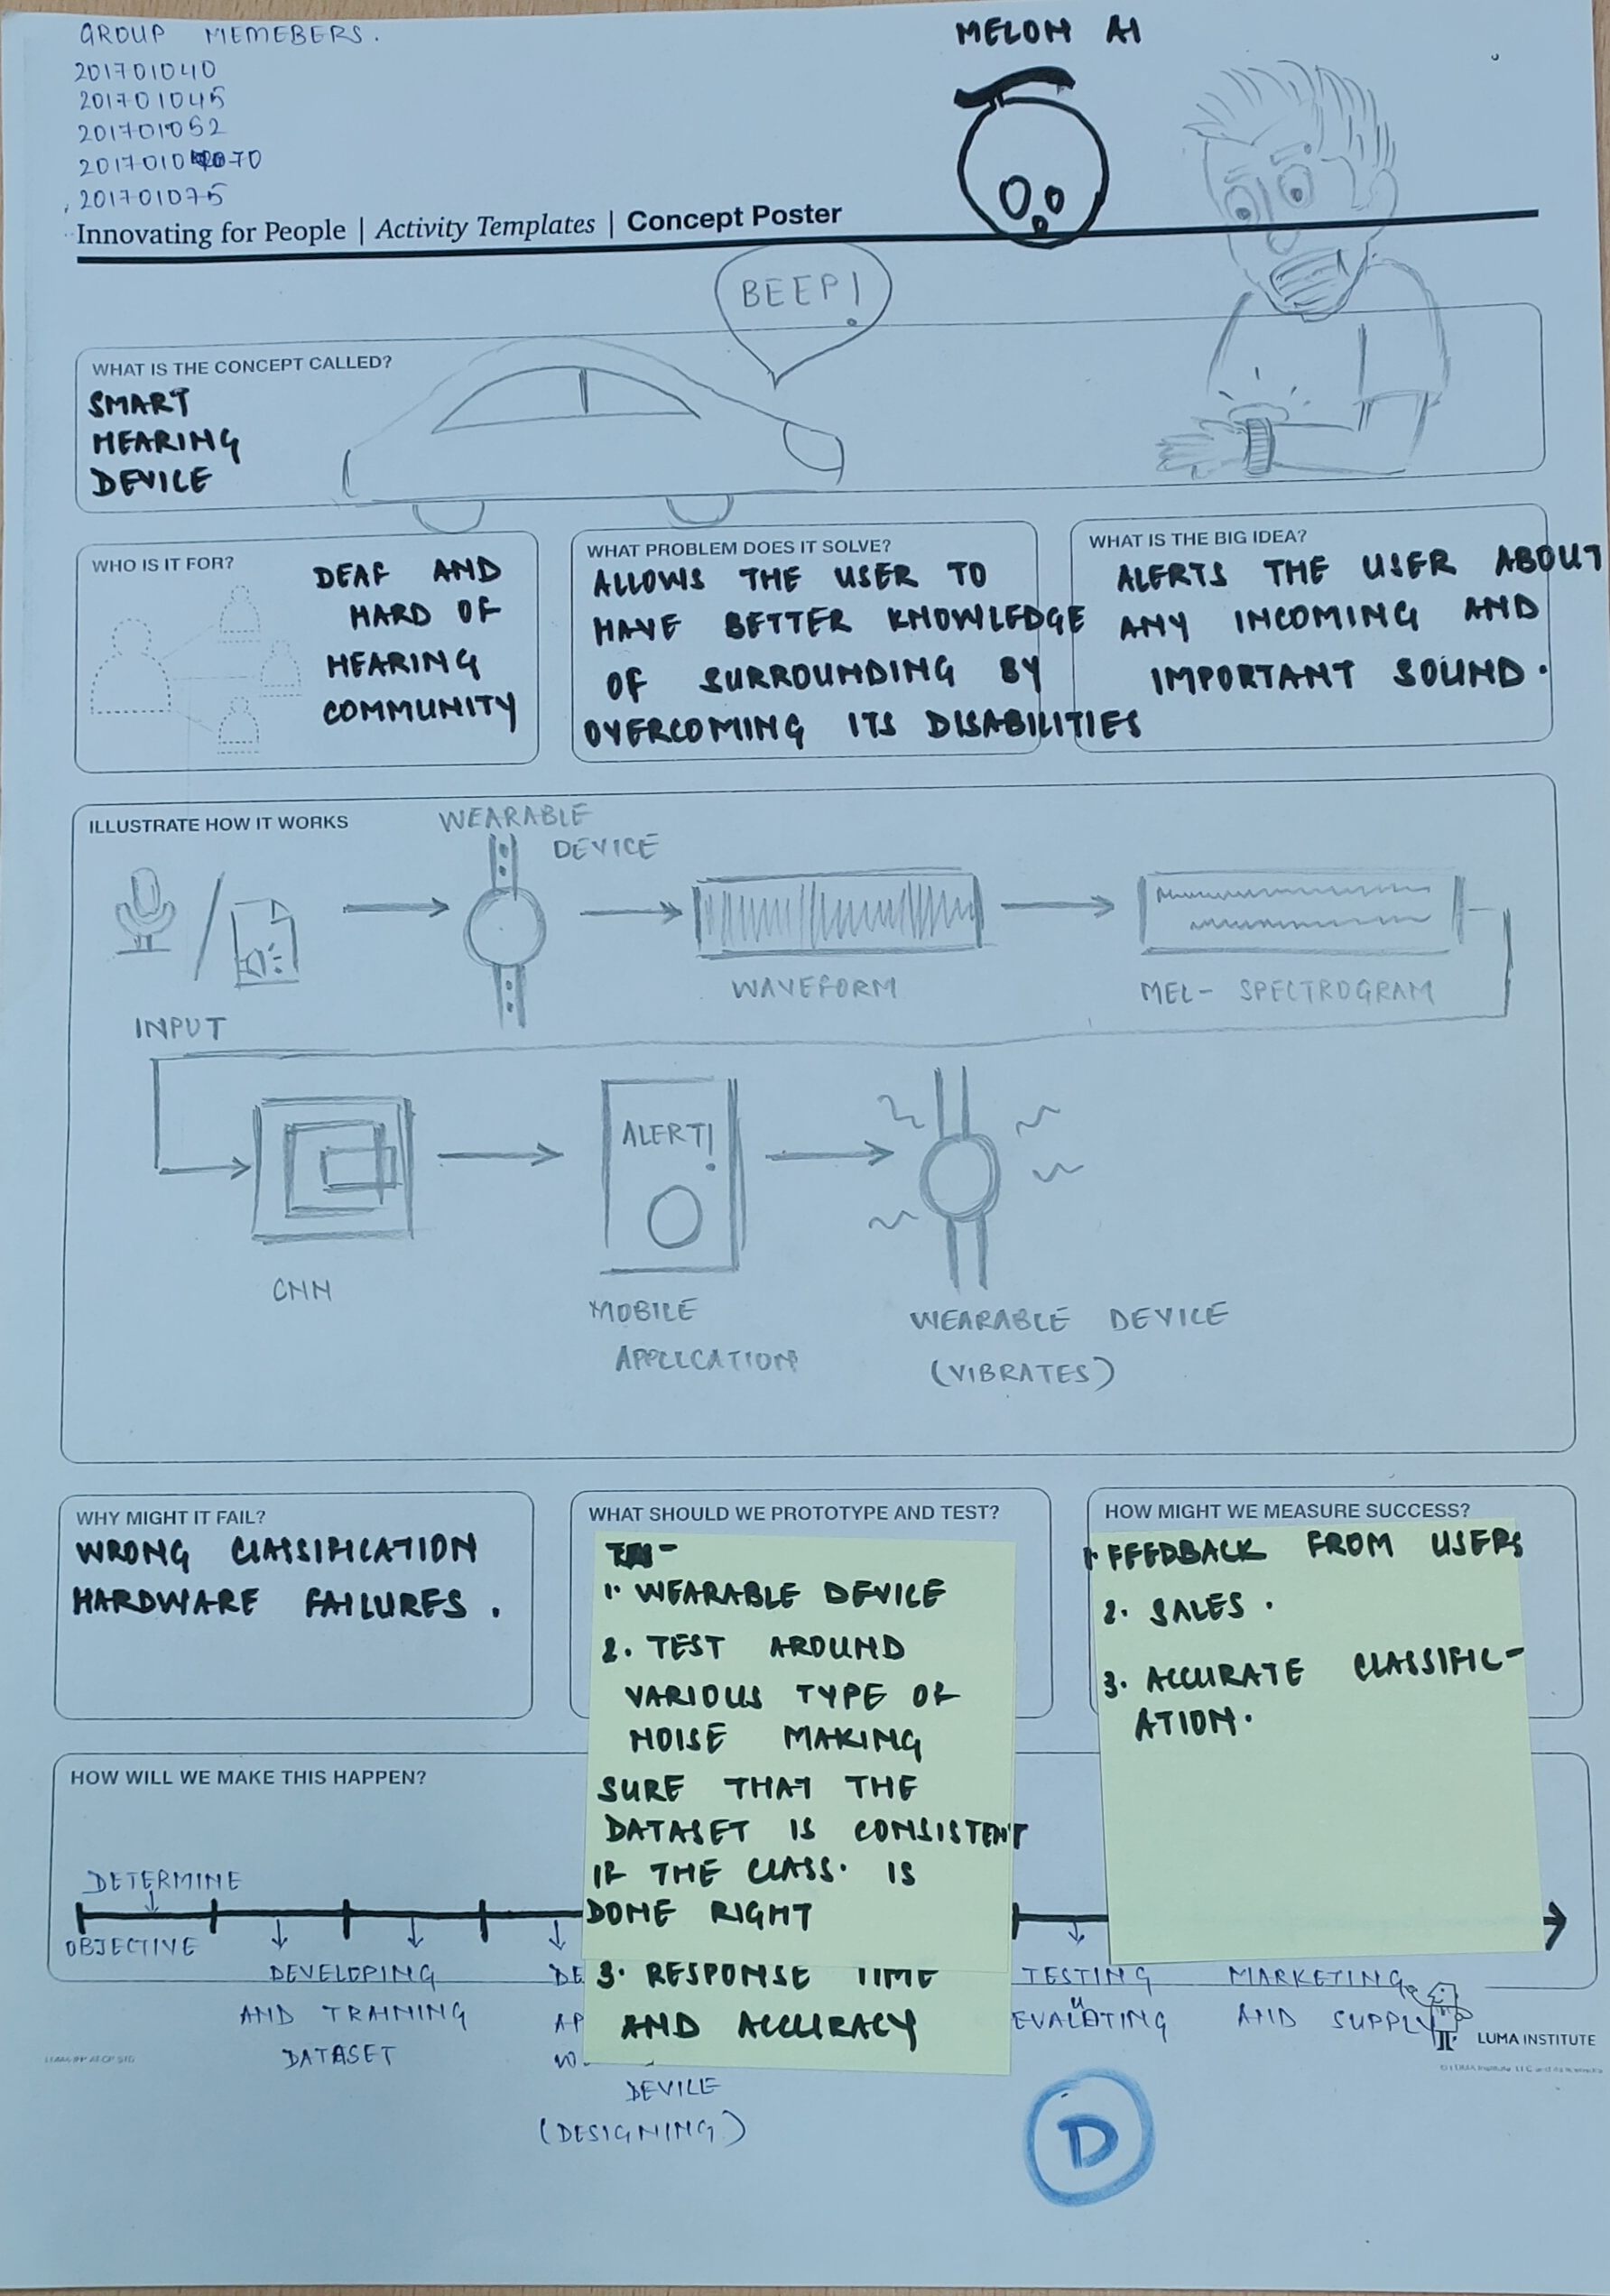 GROUP MEMEBERS.
201701040
201701045
201701052
201701070
201701075
MELON AI
Innovating for People | Activity Templates | Concept Poster
BEEP!
WHAT IS THE CONCEPT CALLED?
SMART
HEARING
DEVICE
WHO IS IT FOR?
DEAF AND
HARD OF
HEARING
COMMUNITY
WHAT PROBLEM DOES IT SOLVE?
ALLOWS THE USER TO
HAVE BETTER KNOWLEDGE
OF SURROUNDING BY
OVERCOMING ITS DISABILITIES
WHAT IS THE BIG IDEA?
ALERTS THE USER ABOUT
ANY INCOMING AND
IMPORTANT SOUND.
ILLUSTRATE HOW IT WORKS
WEARABLE
DEVICE
INPUT
WAVEFORM
MEL- SPECTROGRAM
CNN
ALERT!
MOBILE
APPLICATION
WEARABLE DEVICE
(VIBRATES)
WHY MIGHT IT FAIL?
WRONG CLASSIFICATION
HARDWARE FAILURES.
WHAT SHOULD WE PROTOTYPE AND TEST?
1. WEARABLE DEVICE
2. TEST AROUND
VARIOUS TYPE OF
NOISE MAKING
SURE THAT THE
DATASET IS CONSISTENT
IF THE CLASS. IS
DONE RIGHT
3. RESPONSE TIME
AND ACCURACY
HOW MIGHT WE MEASURE SUCCESS?
1. FEEDBACK FROM USERS
2. SALES.
3. ACCURATE CLASSIFIC-
ATION.
HOW WILL WE MAKE THIS HAPPEN?
DETERMINE
OBJECTIVE
DEVELOPING
AND TRAINING
DATASET
DE
AP
DEVICE
(DESIGNING)
TESTING
EVALUATING
MARKETING
AND SUPPLY
LUMA INSTITUTE
D